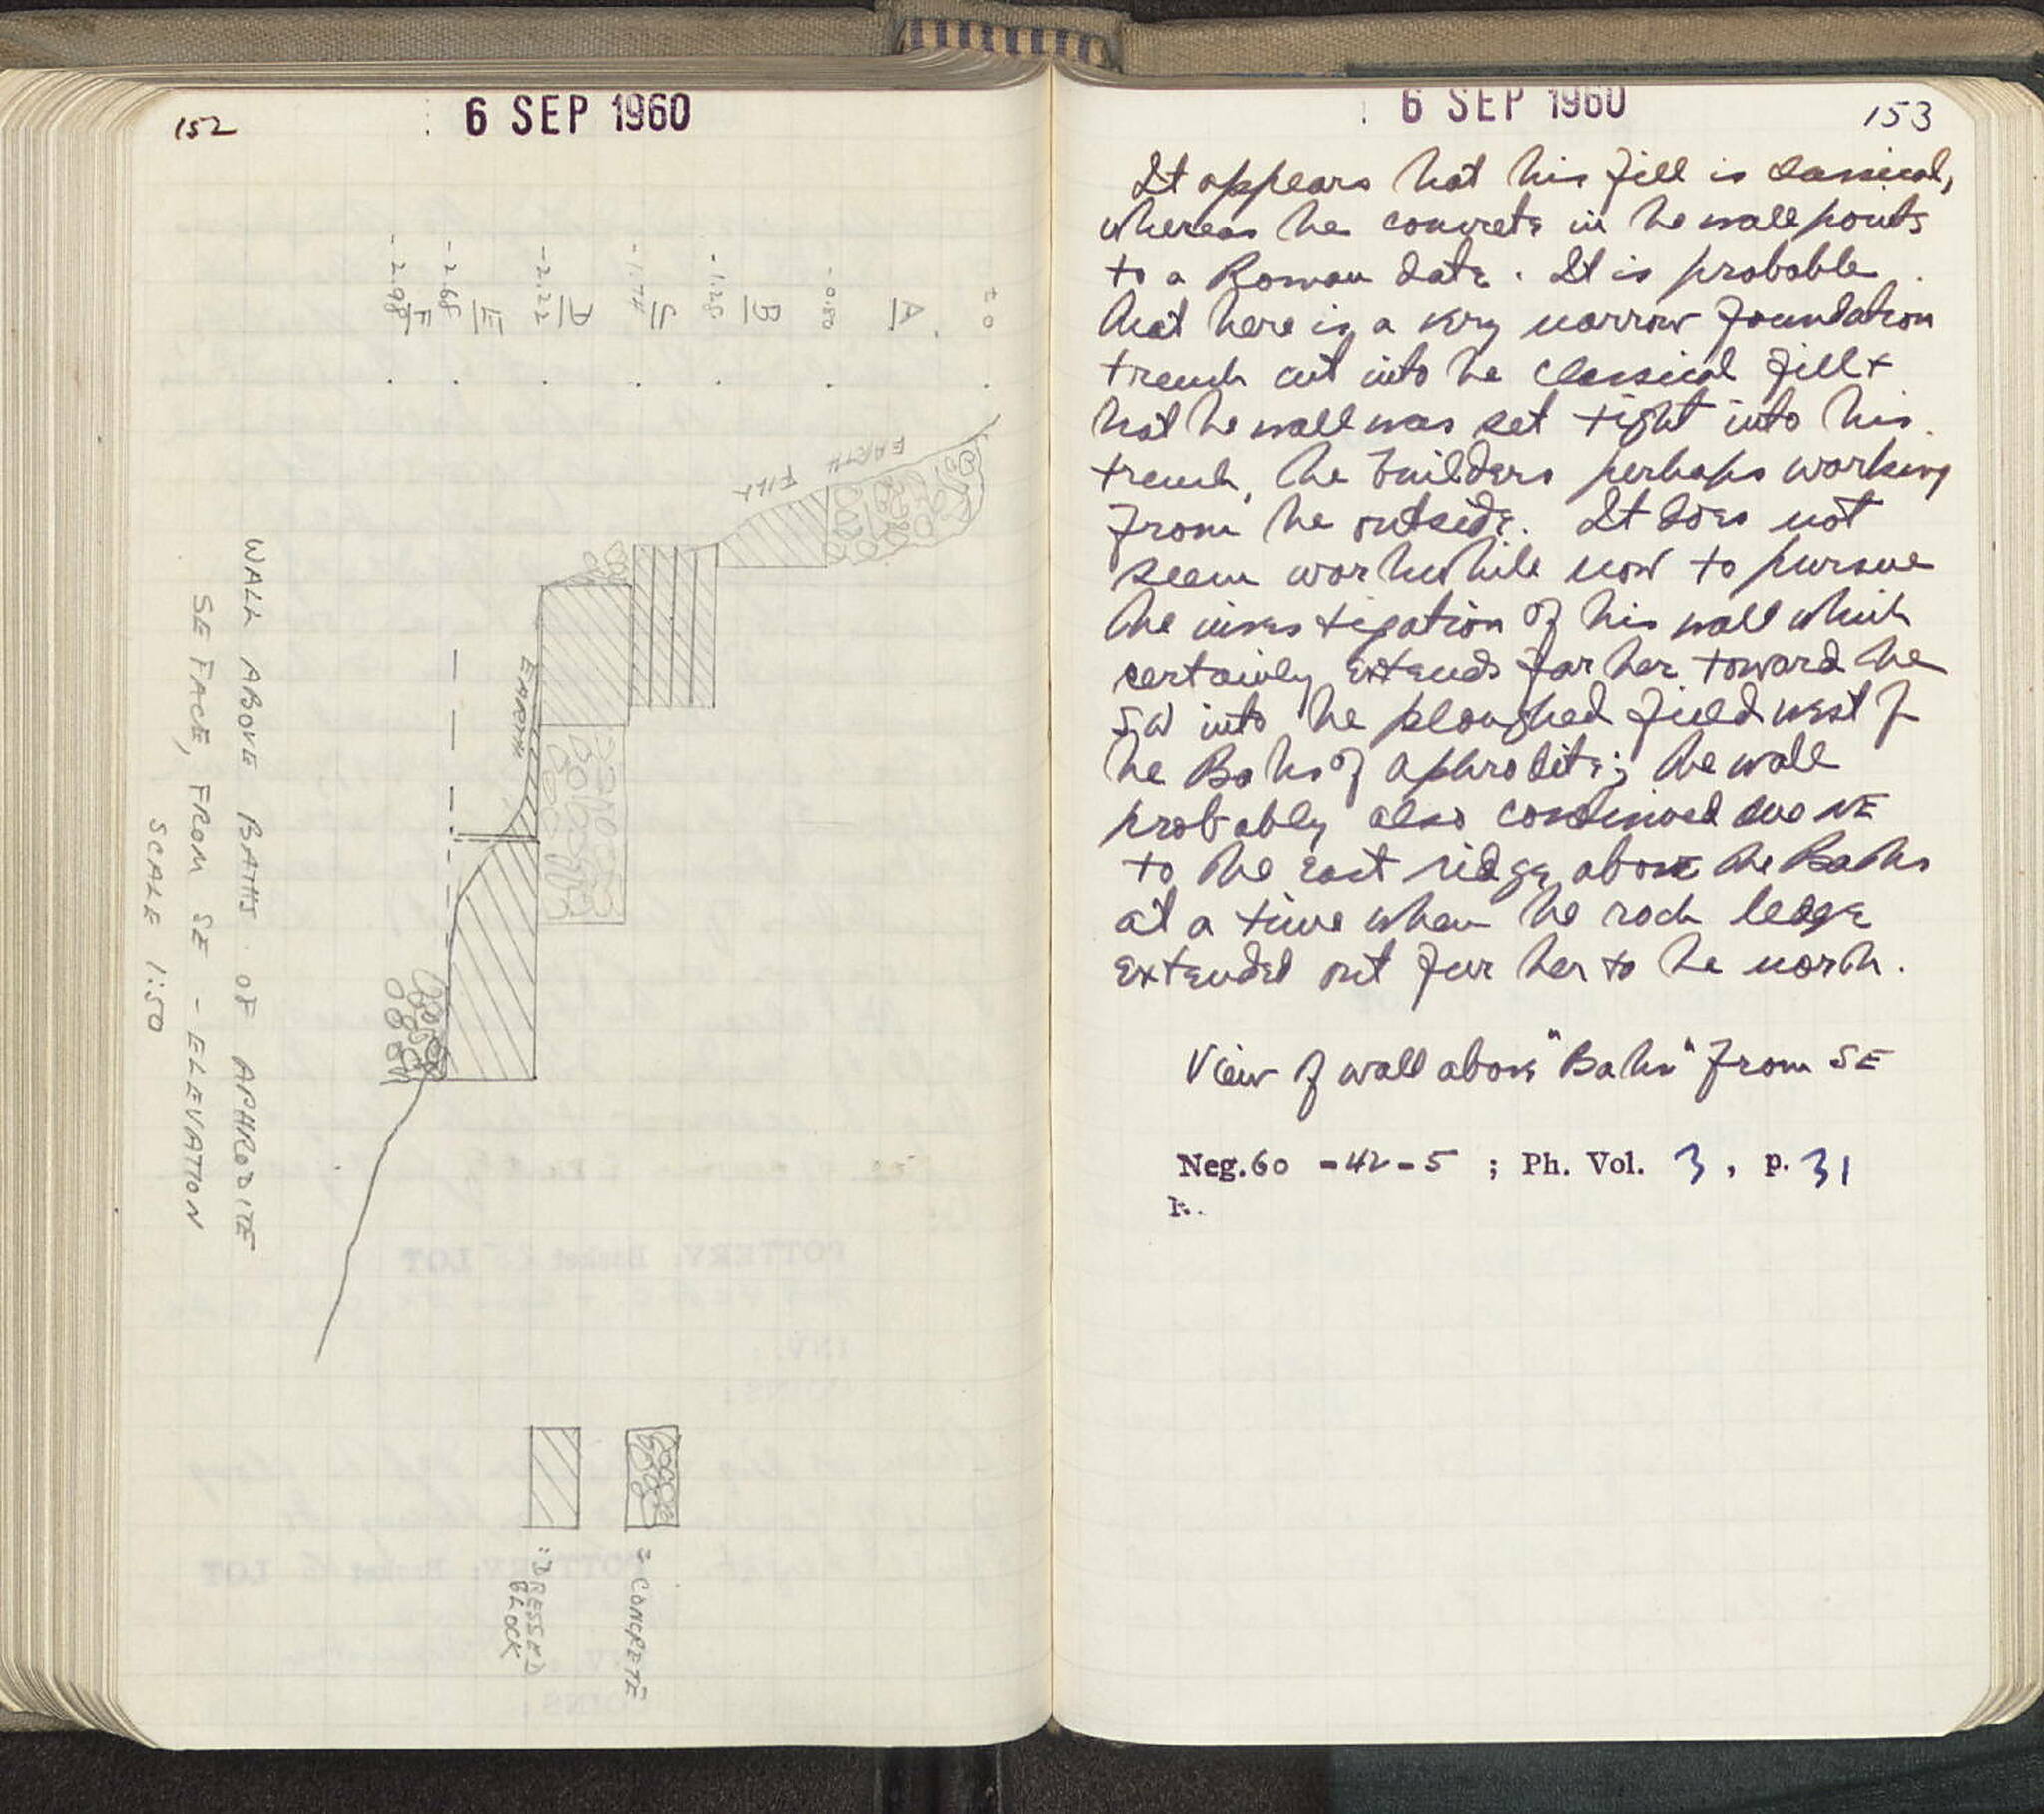 152
6 SEP 1960
± 0
A
-0.80
B
-1.25
S
-1.74
A
-2.22
E
-2.68
F
-2.98
EARTH
FILL
EARTH
WALL ABOVE BATHS OF APHRODITE
SE FACE, FROM SE - ELEVATION
SCALE 1:50
= CONCRETE
= DRESSED
BLOCK
6 SEP 1960
153
It appears that this fill is classical,
whereas the concrete in the wall points
to a Roman date. It is probable
that there is a very narrow foundation
trench cut into the classical fill +
that the wall was set tight into this
trench, the builders perhaps working
from the outside. It does not
seem worthwhile now to pursue
the investigation of this wall which
certainly extends farther toward the
SW into the ploughed field west of
the Baths of Aphrodite; the wall
probably also continued due NE
to the east ridge above the Baths
at a time when the rock ledge
extended out further to the north.
View of wall above "Baths" from SE
Neg. 60 - 42 - 5 ; Ph. Vol. 3, p. 31